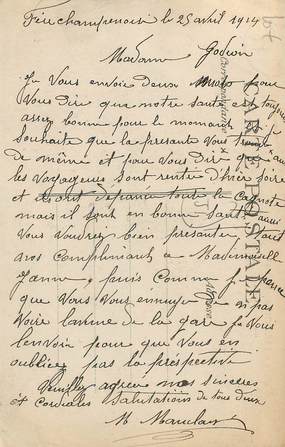 Fère champenoise le 25 avril 1914
Madame Godoin
Je Vous envoie deux mots pour
Vous dire que notre santé est toujours
assez bonne pour le momment
souhaite que la presente vous trouve
de même et pour vous dire que
les voyageurs sont rentré hier soire
et ils ont dépancé toute la cagnote
mais il sont en bonne santé aussi
Vous voudrez bien presanter
nos compliment a Mademoiselle
Janne puris Comme je pense
que Vous Vous ennuyer de ni pas
Voire lavenue de la gare je Vous
lenvoie pour que Vous en
oubliez pas la prespective
Veuillez agreer nos sinceres
et cordiales salutations de tous deux
M Mauclair
CARTE POSTALE